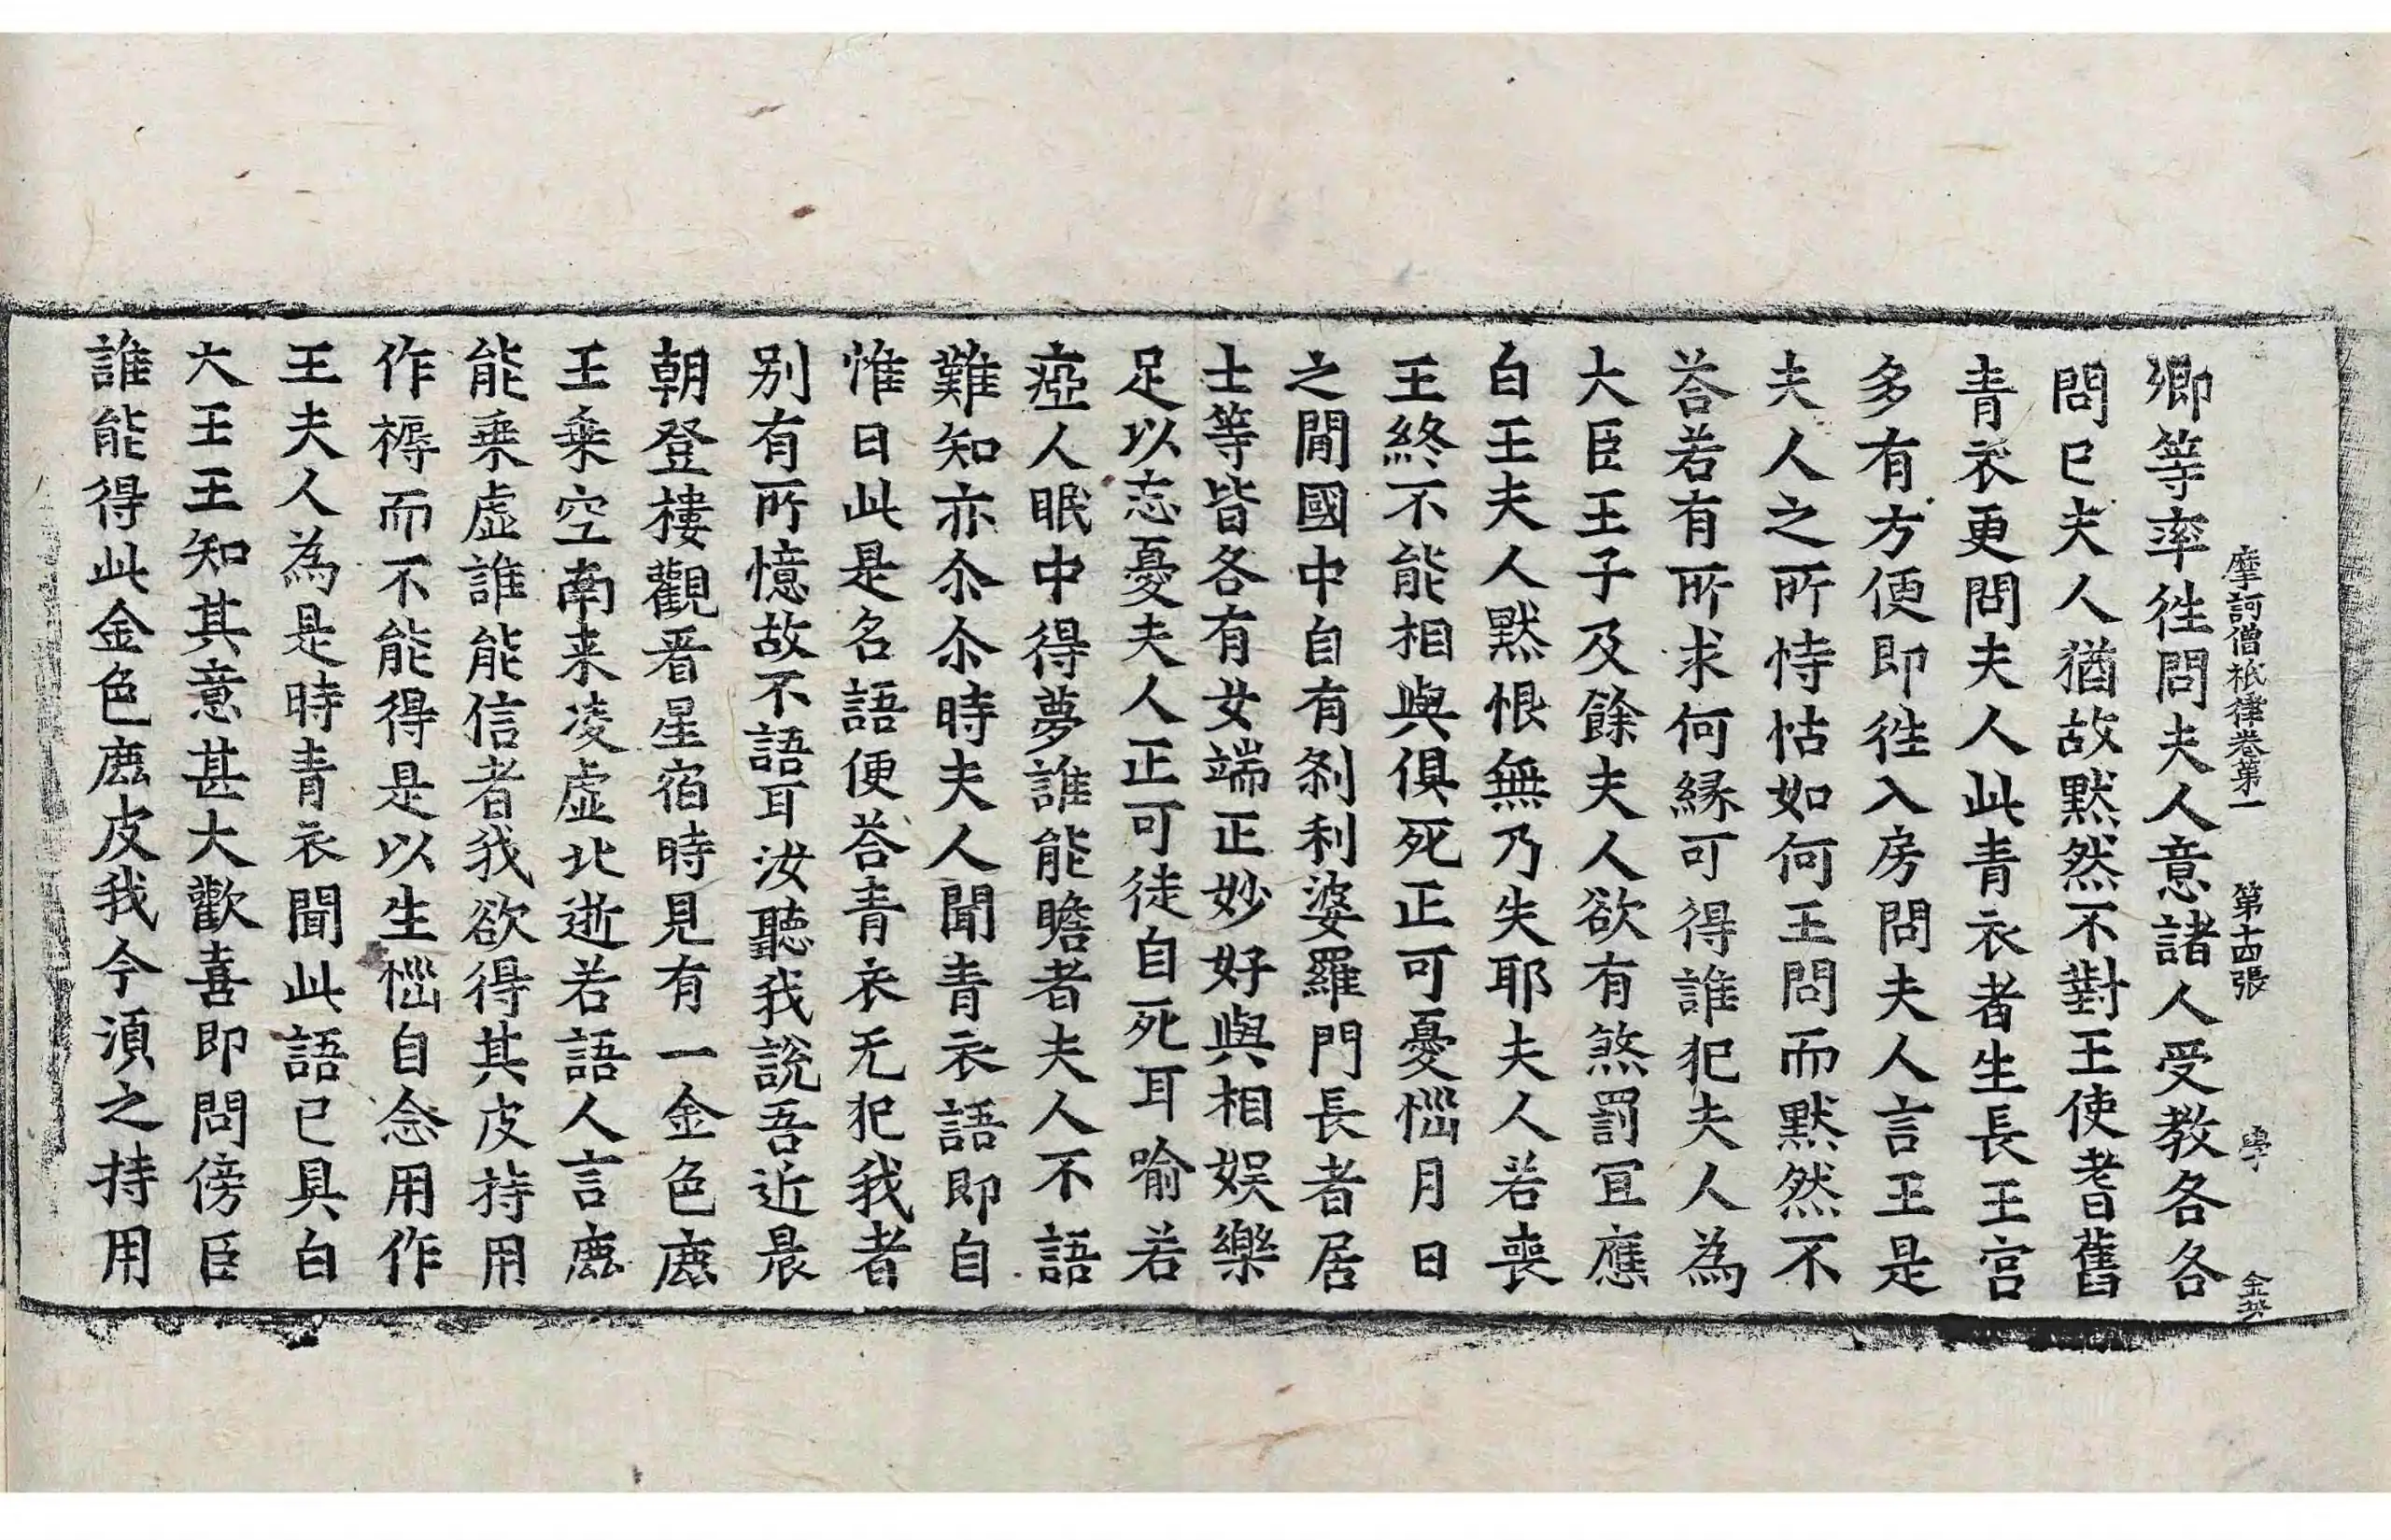 摩訶僧祇律卷第一　第十四張　學　金英
卿等率徃問夫人意諸人受教各各
問已夫人猶故默然不對王使耆舊
青衣更問夫人此青衣者生長王宮
多有方便即徃入房問夫人言王是
夫人之所恃怙如何王問而默然不
荅若有所求何縁可得誰犯夫人為
大臣王子及餘夫人欲有煞罰冝應
白王夫人默恨無乃失耶夫人若喪
王終不能相與俱死正可憂惱月日
之閒國中自有刹利婆羅門長者居
士等皆各有女端正妙好與相娱樂
足以忘憂夫人正可徒自死耳喻若
瘂人眠中得夢誰能瞻者夫人不語
難知亦尒尒時夫人聞青衣語即自
惟曰此是名語便荅青衣无犯我者
别有所憶故不語耳汝聽我說吾近晨
朝登樓觀看星宿時見有一金色鹿
王乗空南来凌虛北逝若語人言鹿
能乗虛誰能信者我欲得其皮持用
作褥而不能得是以生惱自念用作
王夫人為是時青衣聞此語已具白
大王王知其意甚大歡喜即問傍臣
誰能得此金色鹿皮我今湏之持用